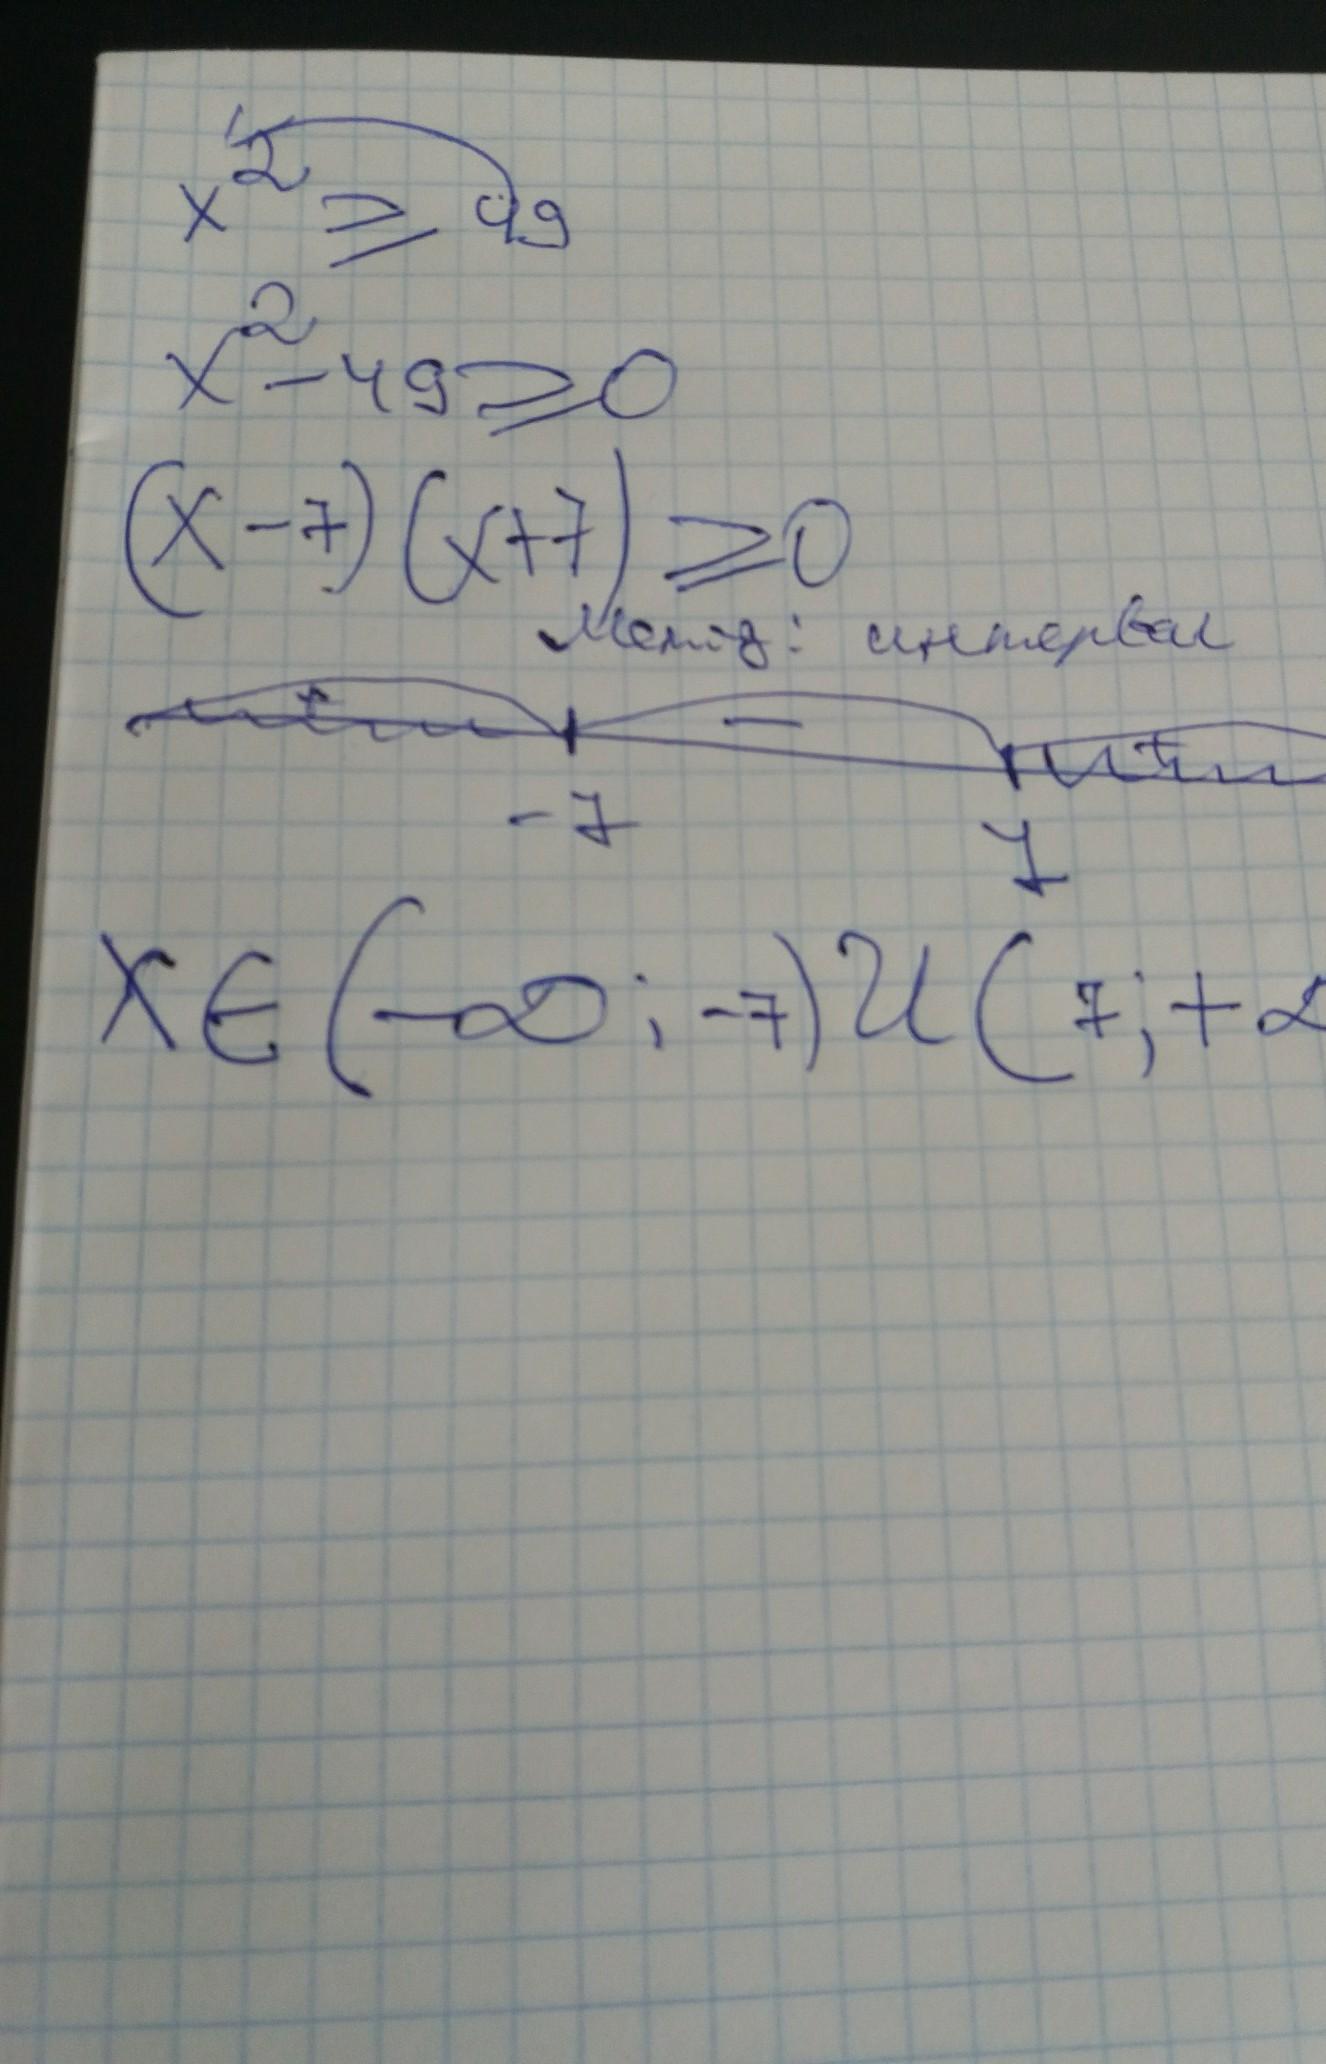 x² ⩾ 49
x² - 49 ⩾ 0
(x - 7) (x + 7) ⩾ 0
Метод: интервал
+ - +
-7 7
x ∈ (-∞; -7) U (7; + ∞